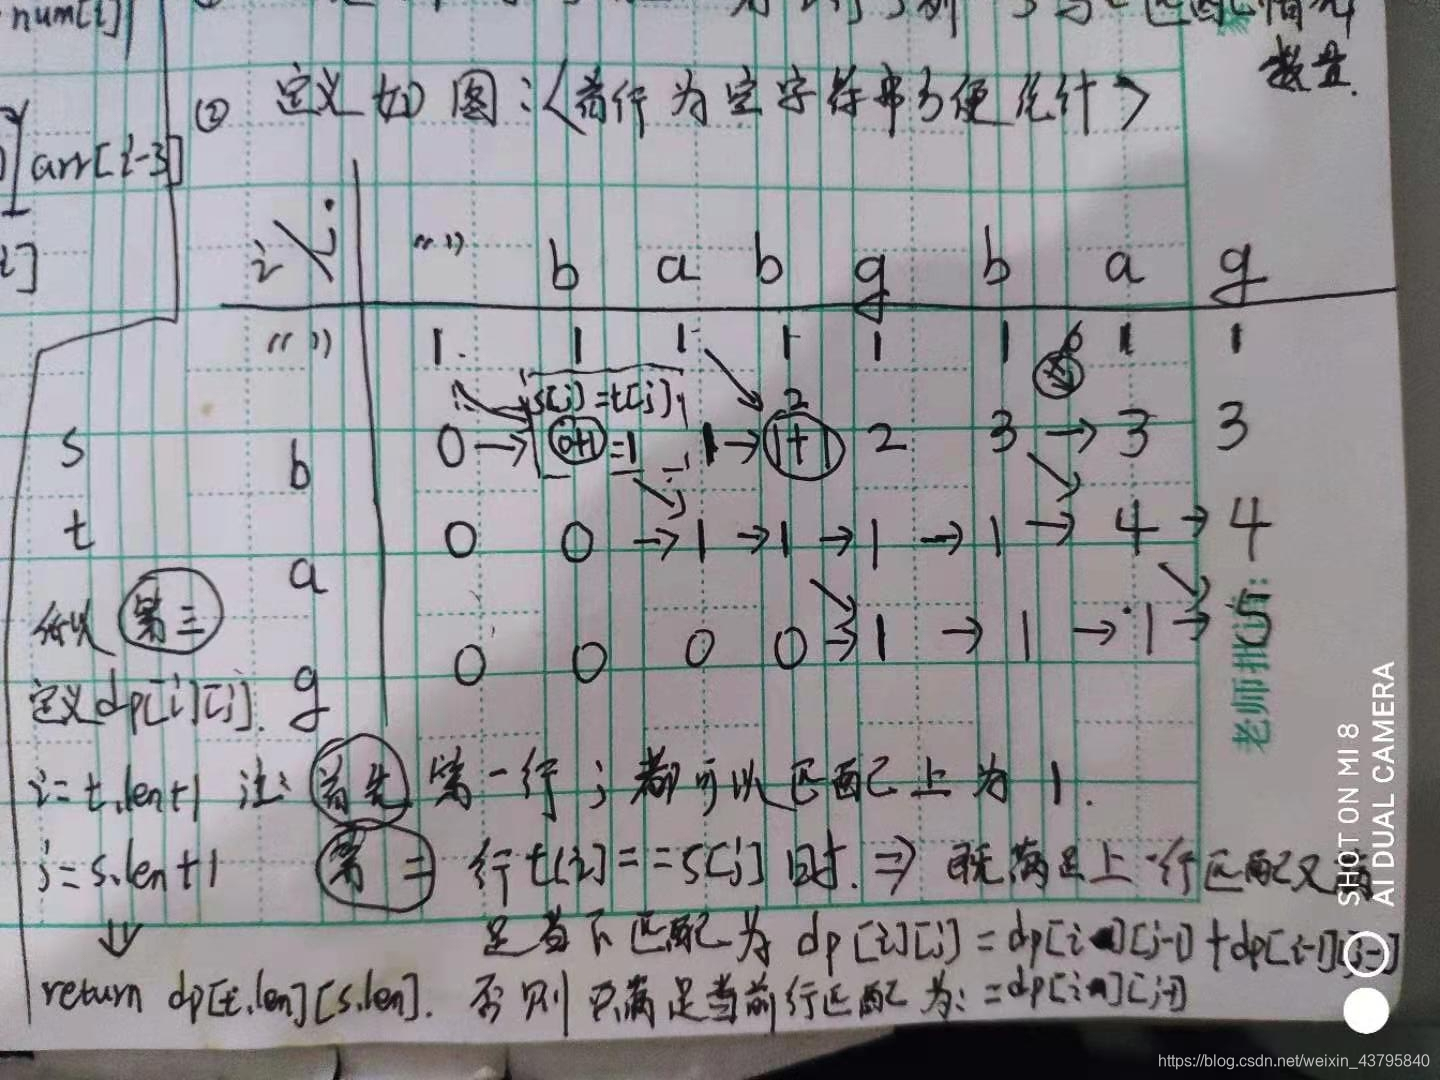 num[i]
数量.
② 定义如图:〈首行为空字符串方便统计〉
arr[i-3]
i]
i \ j "" b a b g b a g
"" 1. 1 1 1 1 1 1 1
s[j]=t[j] 2
s b 0 → 0+1 =1 1 → 1+1 2 3 → 3 3
t a 0 0 → 1 → 1 → 1 → 1 → 4 → 4
g 0 0 0 0 → 1 → 1 → 1 → 5
第三
定义dp[i][j].
老师批
i=t.len+1 注: 首先 第一行;都可以匹配上为1.
j=s.len+1 第二行t[i]==s[j]时.⇒ 既满足上一行匹配又满
足当下匹配为 dp[i][j]=dp[i][j-1]+dp[i-1][j-1]
return dp[t.len][s.len]. 否则只满足当前行匹配为:=dp[i][j-1]
SHOT ON MI 8
AI DUAL CAMERA
https://blog.csdn.net/weixin_43795840